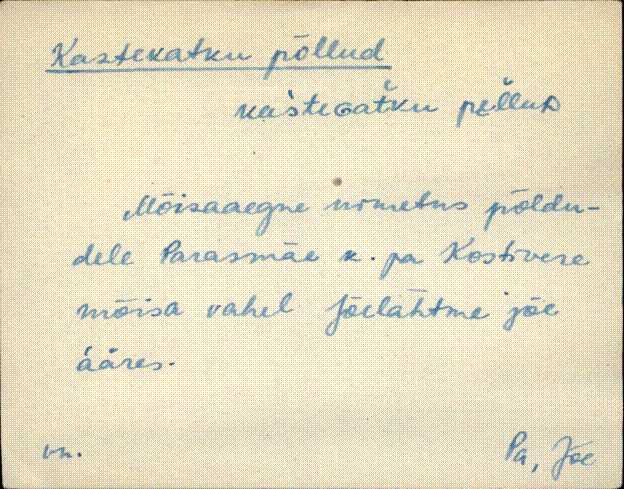 Kastekatku põllud
kàsteGat̆ku pĕ̀lluD
Mõisaaegne nimetus põldu-
dele Parasmäe k. pa Kostivere
mõisa vahel Jõelähtme jõe
ääres.
vn.
Pa, Jõe